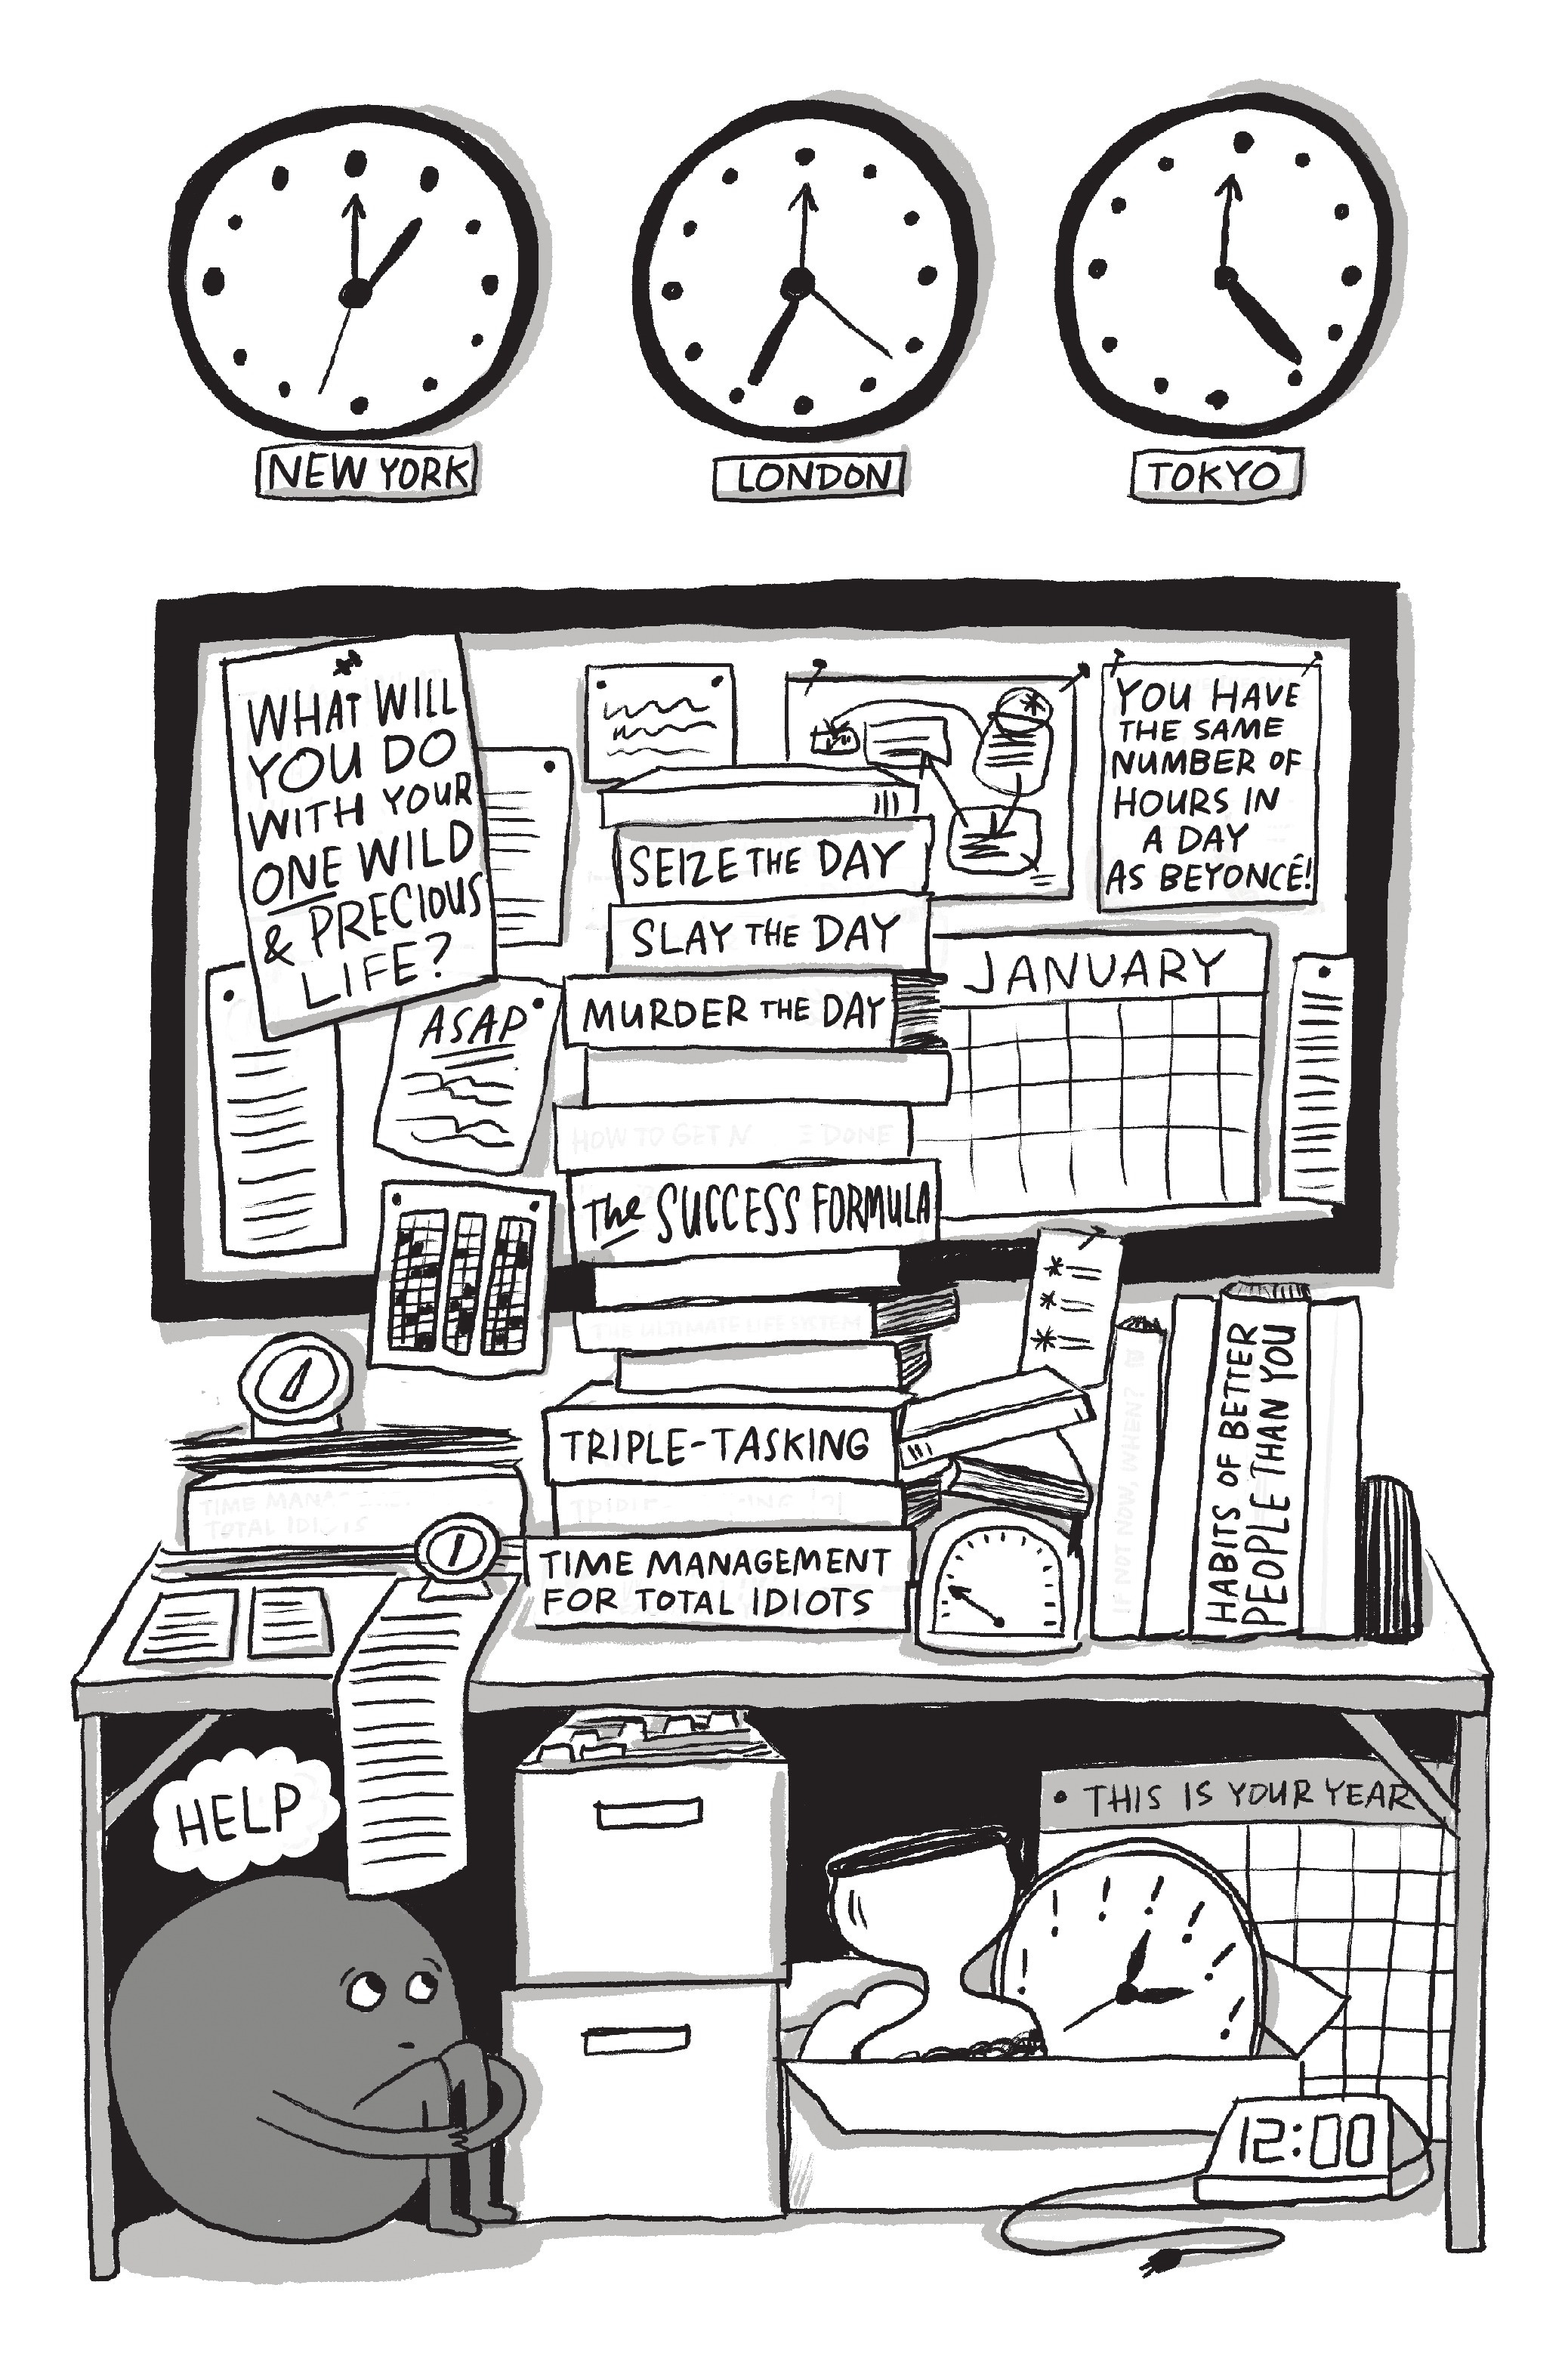 NEW YORK
LONDON
TOKYO
WHAT WILL
YOU DO
WITH YOUR
ONE WILD
& PRECIOUS
LIFE?
YOU HAVE
THE SAME
NUMBER OF
HOURS IN
A DAY
AS BEYONCÉ!
SEIZE THE DAY
SLAY THE DAY
MURDER THE DAY
JANUARY
ASAP
HOW TO GET DONE
The SUCCESS FORMULA
THE ULTIMATE LIFE SYSTEM
TRIPLE-TASKING
TIME
TOTAL
TIME MANAGEMENT
FOR TOTAL IDIOTS
IF NOT NOW, WHEN?
HABITS OF BETTER
PEOPLE THAN YOU
HELP
• THIS IS YOUR YEAR
12:00